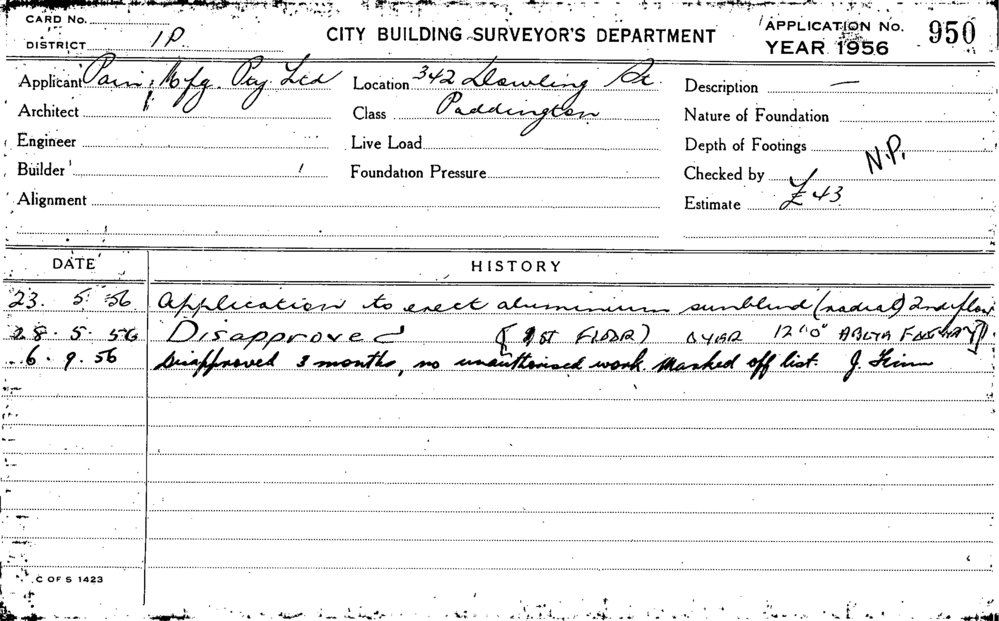 CARD No.
DISTRICT 1P.
CITY BUILDING SURVEYOR'S DEPARTMENT
APPLICATION No. 950
YEAR 1956
Applicant Mfg. Pty Ltd
Architect
Engineer
Builder
Alignment
Location 342 Dowling St
Class Paddington
Live Load
Foundation Pressure
Description —
Nature of Foundation
Depth of Footings
Checked by N.P.
Estimate £43
DATE HISTORY
23. 5. 56 Application to erect aluminium sunblind (radial) 2nd floor
28. 5. 56 Disapproved (1ST FLOOR) OVER 12'0" ABOVE FOOTWAY
6. 9. 56 Disapproved 3 months, no unauthorised work. Marked off list. J.
C OF S 1423